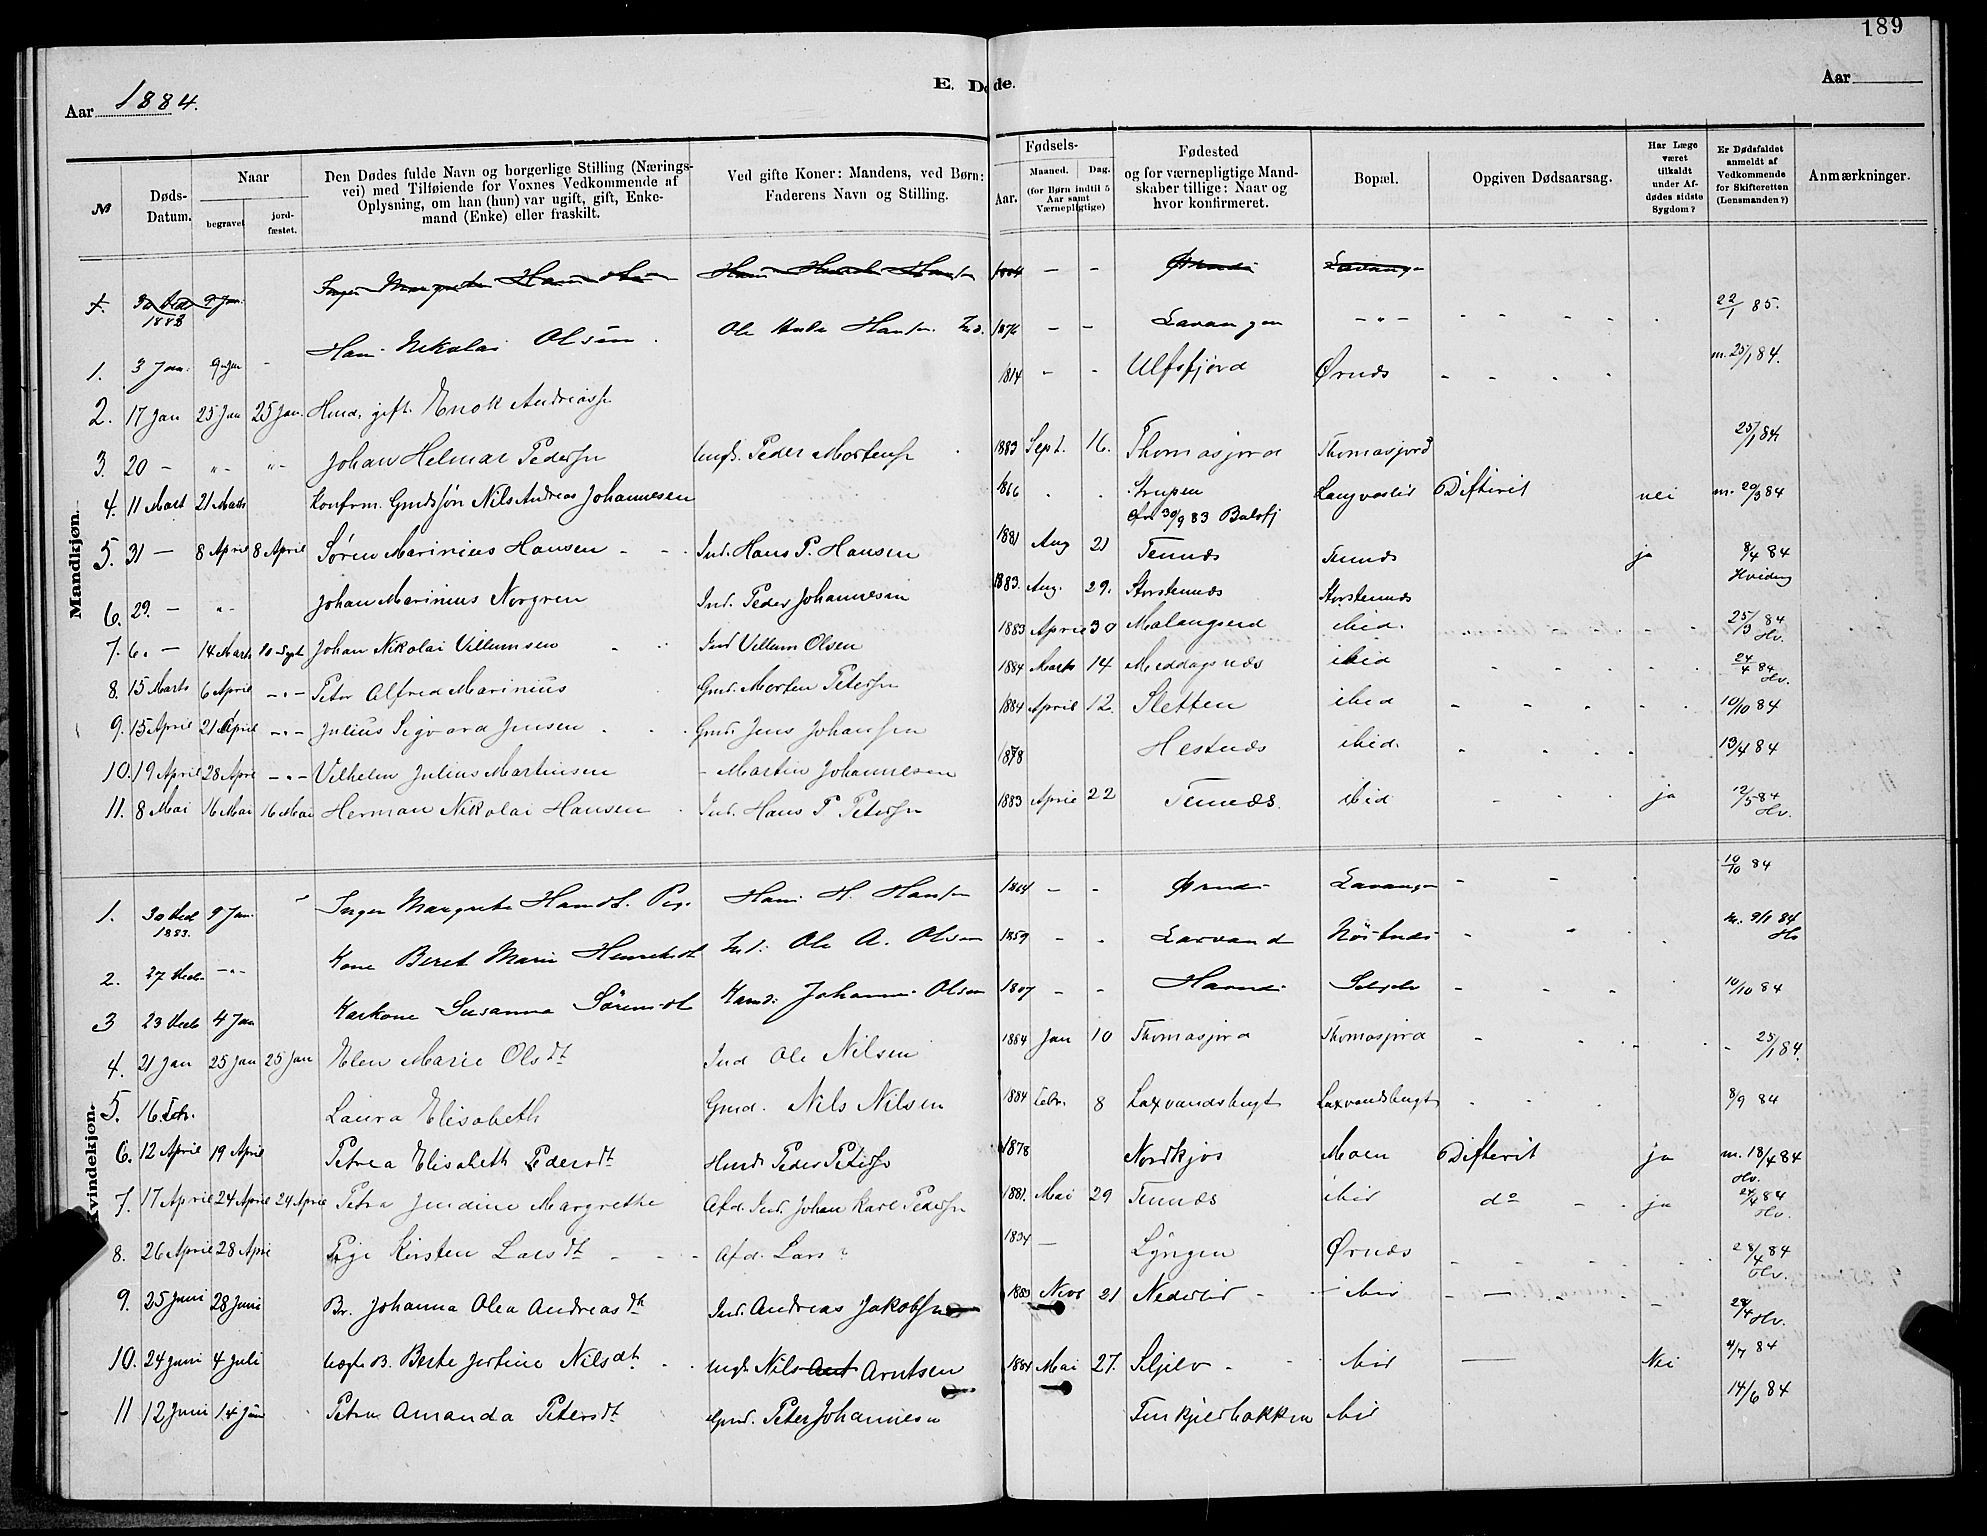 189
Aar 1884.
E. Døde.
Aar
Mandkjøn.
Kvindekjøn.
№ | Døds-Datum. | Naar begravet | jord-fæstet. | Den Dødes fulde Navn og borgerlige Stilling (Nærings-vei) med Tilføiende for Voxnes Vedkommende af Oplysning, om han (hun) var ugift, gift, Enke-mand (Enke) eller fraskilt. | Ved gifte Koner: Mandens, ved Børn: Faderens Navn og Stilling. | Fødsels- Aar. | Maaned. | Dag. (for Børn indtil 5 Aar samt Værnepligtige) | Fødested og for værnepligtige Mand-skaber tillige: Naar og hvor konfirmeret. | Bopæl. | Opgiven Dødsaarsag. | Har Læge været tilkaldt under Af-dødes sidste Sygdom? | Er Dødsfaldet anmeldt af Vedkommende for Skifteretten (Lensmanden?) | Anmærkninger.
1. 3 Jan. 9 Jan - Hans Nikolai Olsen. Ole Hansen Ind. 1876 - - Lavangen - " - 22/1 85.
2. 17 Jan 25 Jan 25 Jan. Hmd. gift. Enok Andreass. 1814 - - Ulfsfjord Ørnæs m. 25/1 84.
3. 20 - " - " - Johan Helmar Peders. Ungk. Peder Mortens. 1883 Sept. 16. Thomasjord Thomasjord 25/1 84
4. 11 Mart 21 Marts Konfrm. Gmdssøn Nils Andreas Johannesen 1866 Strupen 30/9 83 Balsfj Difterit nei m. 20/3 84
5. 31 - 8 April 8 April Søren Marinius Hansen - - Ind. Hans P. Hansen 1881 Aug 21 Tennæs Tennæs ja 8/4 84
6. 29. - " - Johan Marinius Norgren Ind. Peder Johannesen 1883. Aug. 29. Storstennæs Storstennæs Hviding
7. 6. - 14 Marts 20 Sept Johan Nikolai Villumsen Ind Villum Olsen 1883 April 30 Malangseid ibid. 25/3 84 Hv.
8. 15 Marts 6 April - " - Peter Alfred Marinius Gmd. Morten Peters. 1884 Marts 14 Middagsnæs ibid 24/4 84 Hv.
9. 15 April 21 April - " - Julius Sigvard Jensen Gmd. Jens Johans. 1884 April 12. Sletten ibid 10/10 84
10. 19 April 28 April - " - Vilhelm Julius Martinsen - Martin Johannesen 1878 Hestnæs ibid. 13/4 84
11. 8 Mai 16 Mai 16 Mai Herman Nikolai Hansen Ind. Hans P. Peters. 1883 April 22 Tennæs. ibid ja 12/5 84 Hv.
1. 30 Decb 1883. 9 Jan. Inger Margrete Hansdt. Pige. Hans H. Hansen 1864 - - Ørnæs Lavangen 10/10 84
2. 27 Decb. - " - Kone Beret Marie Ind: Ole A. Olsen 1859 - - Laxvand m. 9/1 84 Hv
3 23 Decb 4 Jan Karkone Susanna Sørensdt Johannes Olsen 1807 - - Havnæs Seljelv 10/10 84
4. 21 Jan 25 Jan 25 Jan Elen Marie Olsdt Ind Ole Nilsen 1884 Jan 10 Thomasjord Thomasjord 25/1 84.
5. 16 Febr. Laura Elisabeth Gmd. Nils Nilsen 1884 Febr. 8 Laxvandsbugt Laxvandsbugt 8/9 84
6. 12 April 19 April Petrea Elisabeth Pedersdt Hmd. Peder Peters. 1878 Nordkjos Moen Difterit ja m. 18/4 84 Hv.
7. 17 April 24 April 24 April Petra Jensine Margrethe Afd. Ind. Johan Karl Peders. 1881. Mai 29 Tennæs ibid do ja 27/4 84 Hv.
8. 26 April 28 April Pige Kirsten Larsdt - - - Afd. Lars ? 1834 - Lyngen Ørnæs 28/4 84 Hv.
9. 25 Juni 28 Juni Br. Johanna Olea Andreasdt Ind. Andreas Jakobs. 1883 Novr 21 Nedrlid - ibid 28/4 Hv.
10. 24 Juni 4 Juli Uægte B. Berte Justine Nilsdt. Ungk. Nils Arntsen 1884 Mai 27. Seljelv - ibid Nei 4/7 84
11 12 Juni 14 Juni Petra Amanda Petersdt Gmd. Peter Johannesen ibid 14/6 84